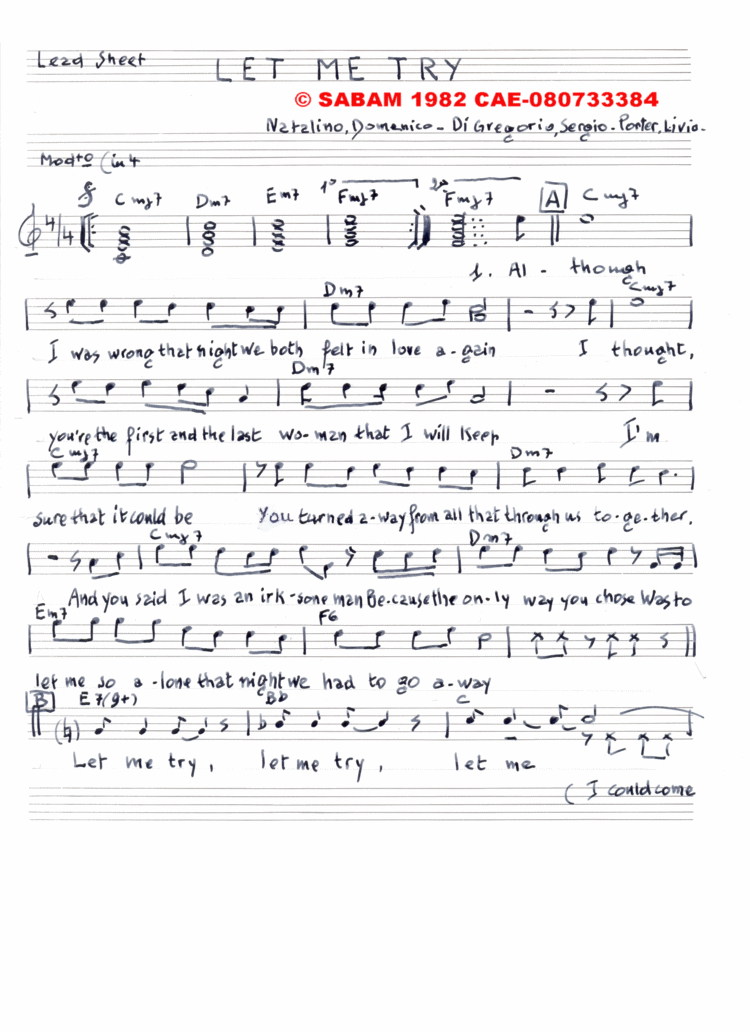 Lead Sheet
LET ME TRY
© SABAM 1982 CAE-080733384
Natalino, Domenico - Di Gregorio, Sergio - Porter, Livio -
Modto (in 4
Cmaj7 Dm7 Em7 1° Fmaj7 2° Fmaj7 A Cmaj7
4/4
1. Al - though
Dm7 Cmaj7
I was wrong that night we both felt in love a - gain I thought,
Dm7
you're the first and the last wo - man that I will keep I'm
Cmaj7 Dm7
sure that it could be You turned a - way from all that through us to - ge - ther.
Cmaj7 Dm7
And you said I was an irk - sone man Be - cause the on - ly way you chose Was to
Em7 F6
let me so a - lone that night we had to go a - way
B E7(9+) Bb C
Let me try, let me try, let me
( I could come